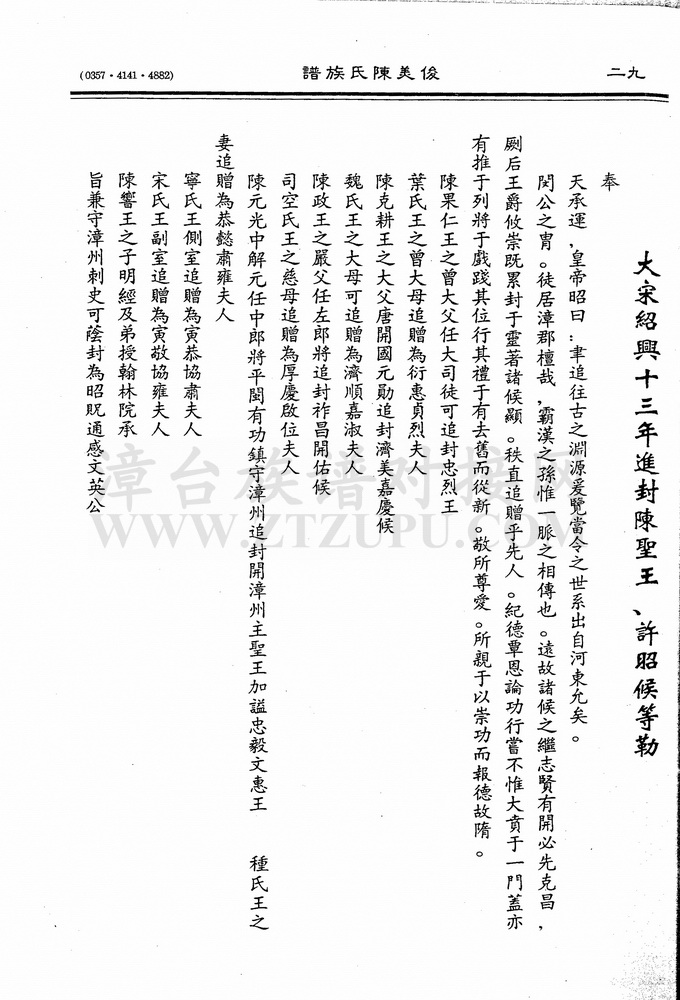 (0357·4141·4882)
譜族氏陳美俊
二九
大宋紹興十三年進封陳聖王、許昭候等勒
奉
天承運,皇帝昭曰:聿追往古之淵源爰覽當令之世系出自河東允矣。
閔公之冑。徒居漳郡檀哉,霸漢之孫惟一脈之相傳也。遠故諸候之繼志賢有開必先克昌,
厥后王爵攸崇既累封于靈著諸候顯。秩直追贈乎先人。紀德覃恩論功行嘗不惟大賁于一門蓋亦
有推于列將于戲踐其位行其禮于有去舊而從新。敬所尊愛。所親于以崇功而報德故隋。
陳果仁王之曾大父任大司徒可追封忠烈王
葉氏王之曾大母追贈為衍惠貞烈夫人
陳克耕王之大父唐開國元勛追封濟美嘉慶候
魏氏王之大母可追贈為濟順嘉淑夫人
陳政王之嚴父任左郎將追封祚昌開佑候
司空氏王之慈母追贈為厚慶啟位夫人
陳元光中解元任中郎將平閩有功鎮守漳州追封開漳州主聖王加謚忠毅文惠王 種氏王之
妻追贈為恭懿肅雍夫人
寧氏王側室追贈為寅恭協肅夫人
宋氏王副室追贈為寅敬協雍夫人
陳響王之子明經及弟授翰林院承
旨兼守漳州刺史可蔭封為昭貺通感文英公
漳台族譜对接网
WWW.ZTZUPU.COM